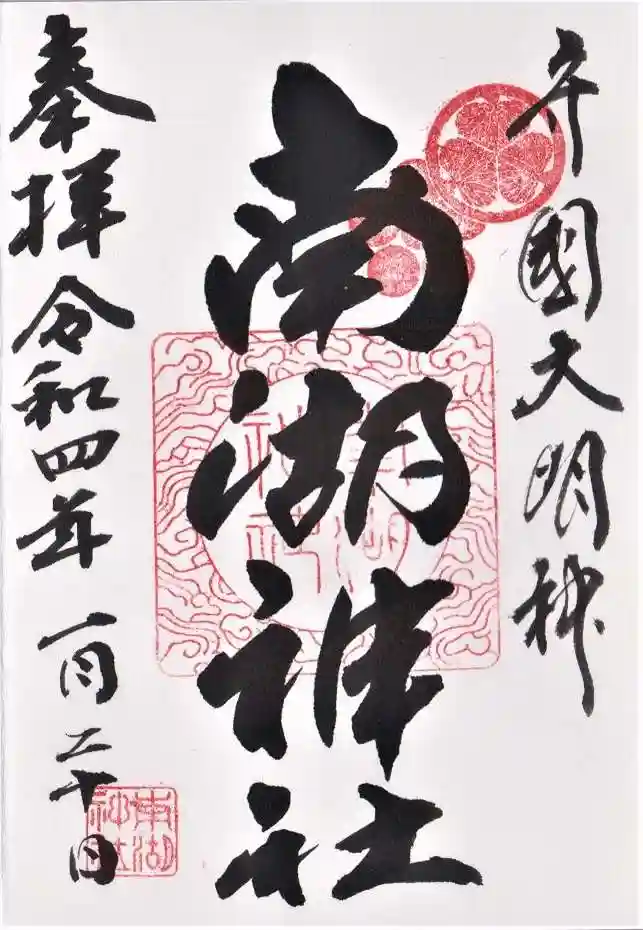 守國大明神
南湖神社
奉拝 令和四年 一月二十日
南湖神社
南湖神社